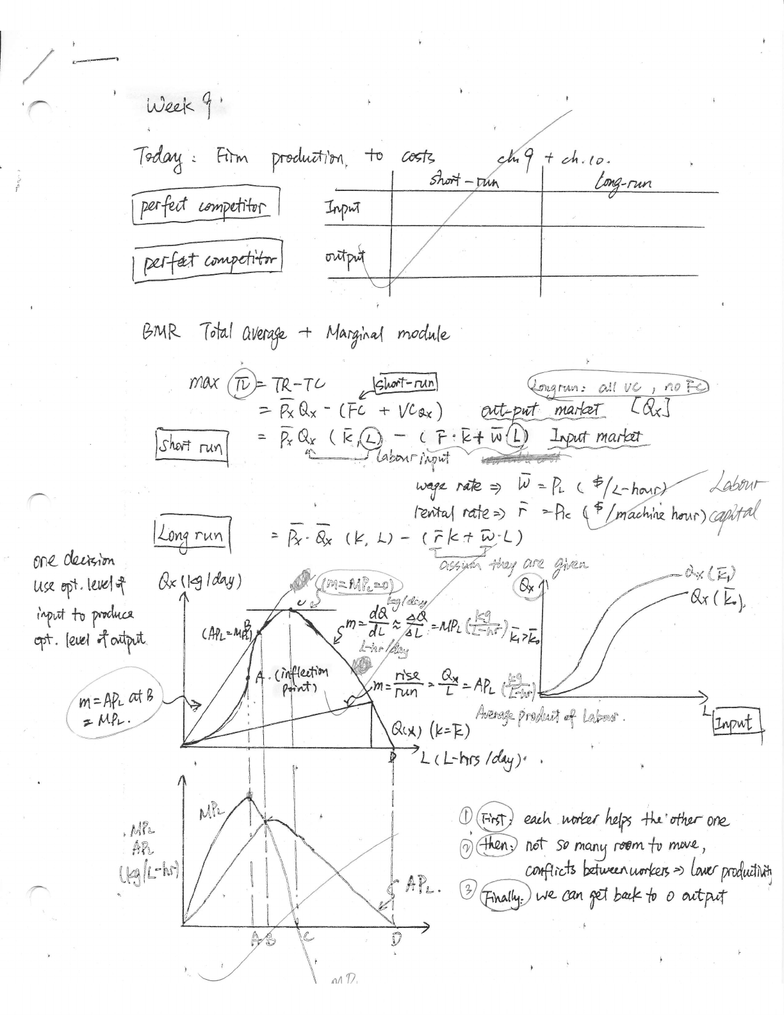 Week 9
Today: Firm production, to costs ch.9 + ch.10.
short-run Long-run
perfect competitor Input
perfect competitor output
BMR Total average + Marginal module
max π = TR-TC short-run Longrun: all VC, no FC
= P̄x Qx - (F̄C + VCQx) out-put market [Qx]
short run = P̄x Qx (K̄, L) - (r̄·K̄ + w̄·L) Input market
Labour input
wage rate ⇒ w̄ = PL ($/L-hour) Labour
rental rate ⇒ r̄ = PK ($/machine hour) capital
Long run = P̄x·Q̄x (K, L) - (r̄K + w̄·L)
assum they are given
one decision
use opt. level of
input to produce
opt. level of output.
Qx (kg/day)
(m=MPL=0)
C
(APL=MPL) B
kg/day
m = dQ/dL ≈ ΔQ/ΔL = MPL (kg/L-hr)
L-hr/day
A. (inflection
point)
m = rise/run = Qx/L = APL (kg/L-hr)
m = APL at B
= MPL.
Average product of Labour.
Q(x) (K=K̄)
D
L (L-hrs/day).
Qx
Qx (K̄1)
Qx (K̄0).
K̄1 > K̄0
L Input
MPL
APL
(kg/L-hr)
MPL
APL.
A B C D
MPL
① First: each worker helps the other one
② then: not so many room to move,
conflicts between workers ⇒ lower productivity
③ Finally: we can get back to 0 output